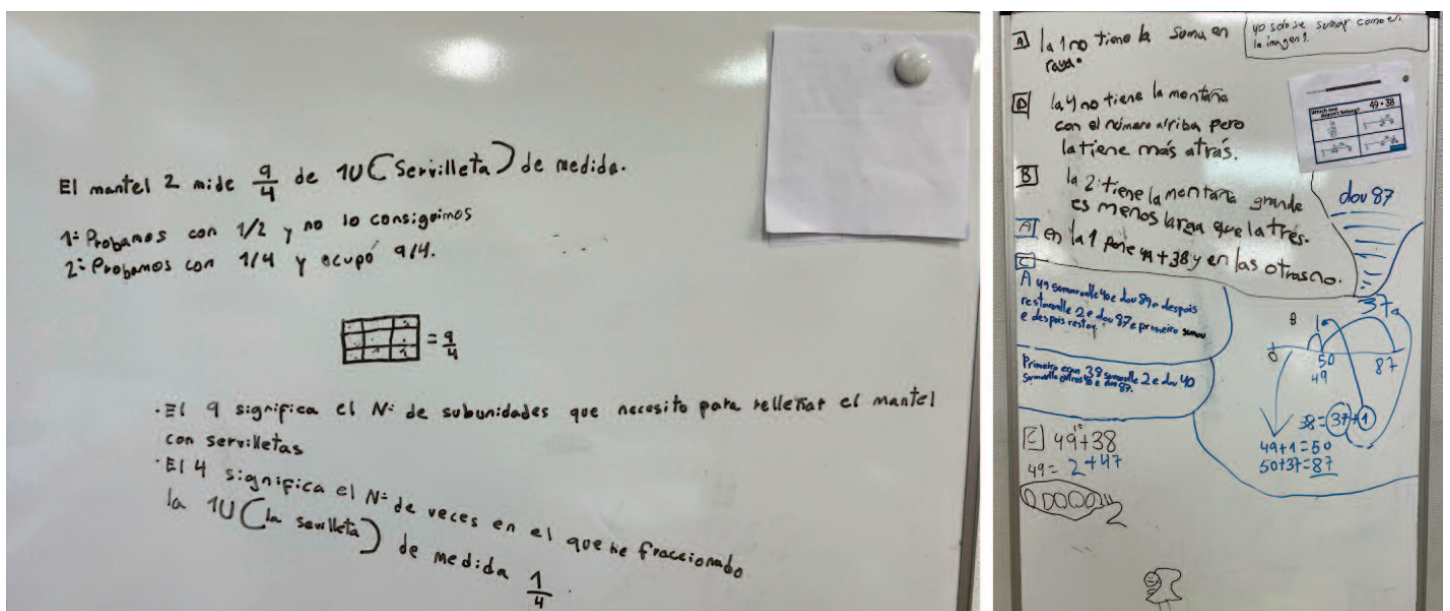 El mantel 2 mide 9/4 de 1U (Servilleta) de medida.
1º Probamos con 1/2 y no lo conseguimos
2º Probamos con 1/4 y ocupó 9/4.
= 9/4
· El 9 significa el Nº de subunidades que necesito para rellenar el mantel
con servilletas
· El 4 significa el Nº de veces en el que he fraccionado
la 1U (la servilleta) de medida 1/4.
A la 1 no tiene la suma en
raya.
yo solo se sumar como en
la imagen 1.
D la 4 no tiene la montaña
con el número arriba pero
la tiene más atrás.
49 + 38
B la 2 tiene la montaña grande
es menos larga que la tres.
dou 87
A en la 1 pone 49+38 y en las otras no.
C
A 49 sumareille 40 e dou 89 e despois
restareille 2 e dou 87 e primeiro sumou
e despois restou
Primeiro 38 sumolle 2 e dou 40
e dou 87.
37
B 1
0 50 87
49
38=37+1
49+1=50
50+37=87
C 49+38
49= 2+47
2